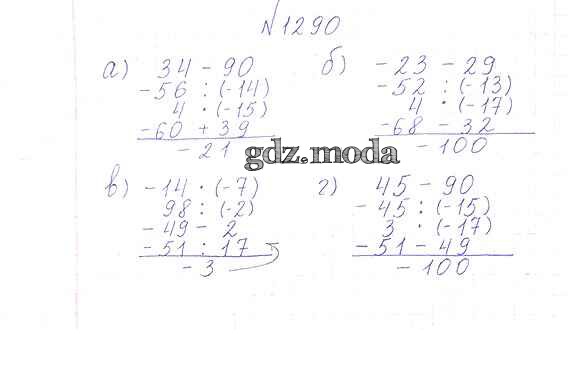 №1290
а) 34 - 90
-56 : (-14)
4 · (-15)
-60 + 39
-21
б) -23 - 29
-52 : (-13)
4 · (-17)
-68 - 32
-100
gdz.moda
в) -14 · (-7)
98 : (-2)
-49 - 2
-51 : 17
-3
г) 45 - 90
-45 : (-15)
3 · (-17)
-51 - 49
-100